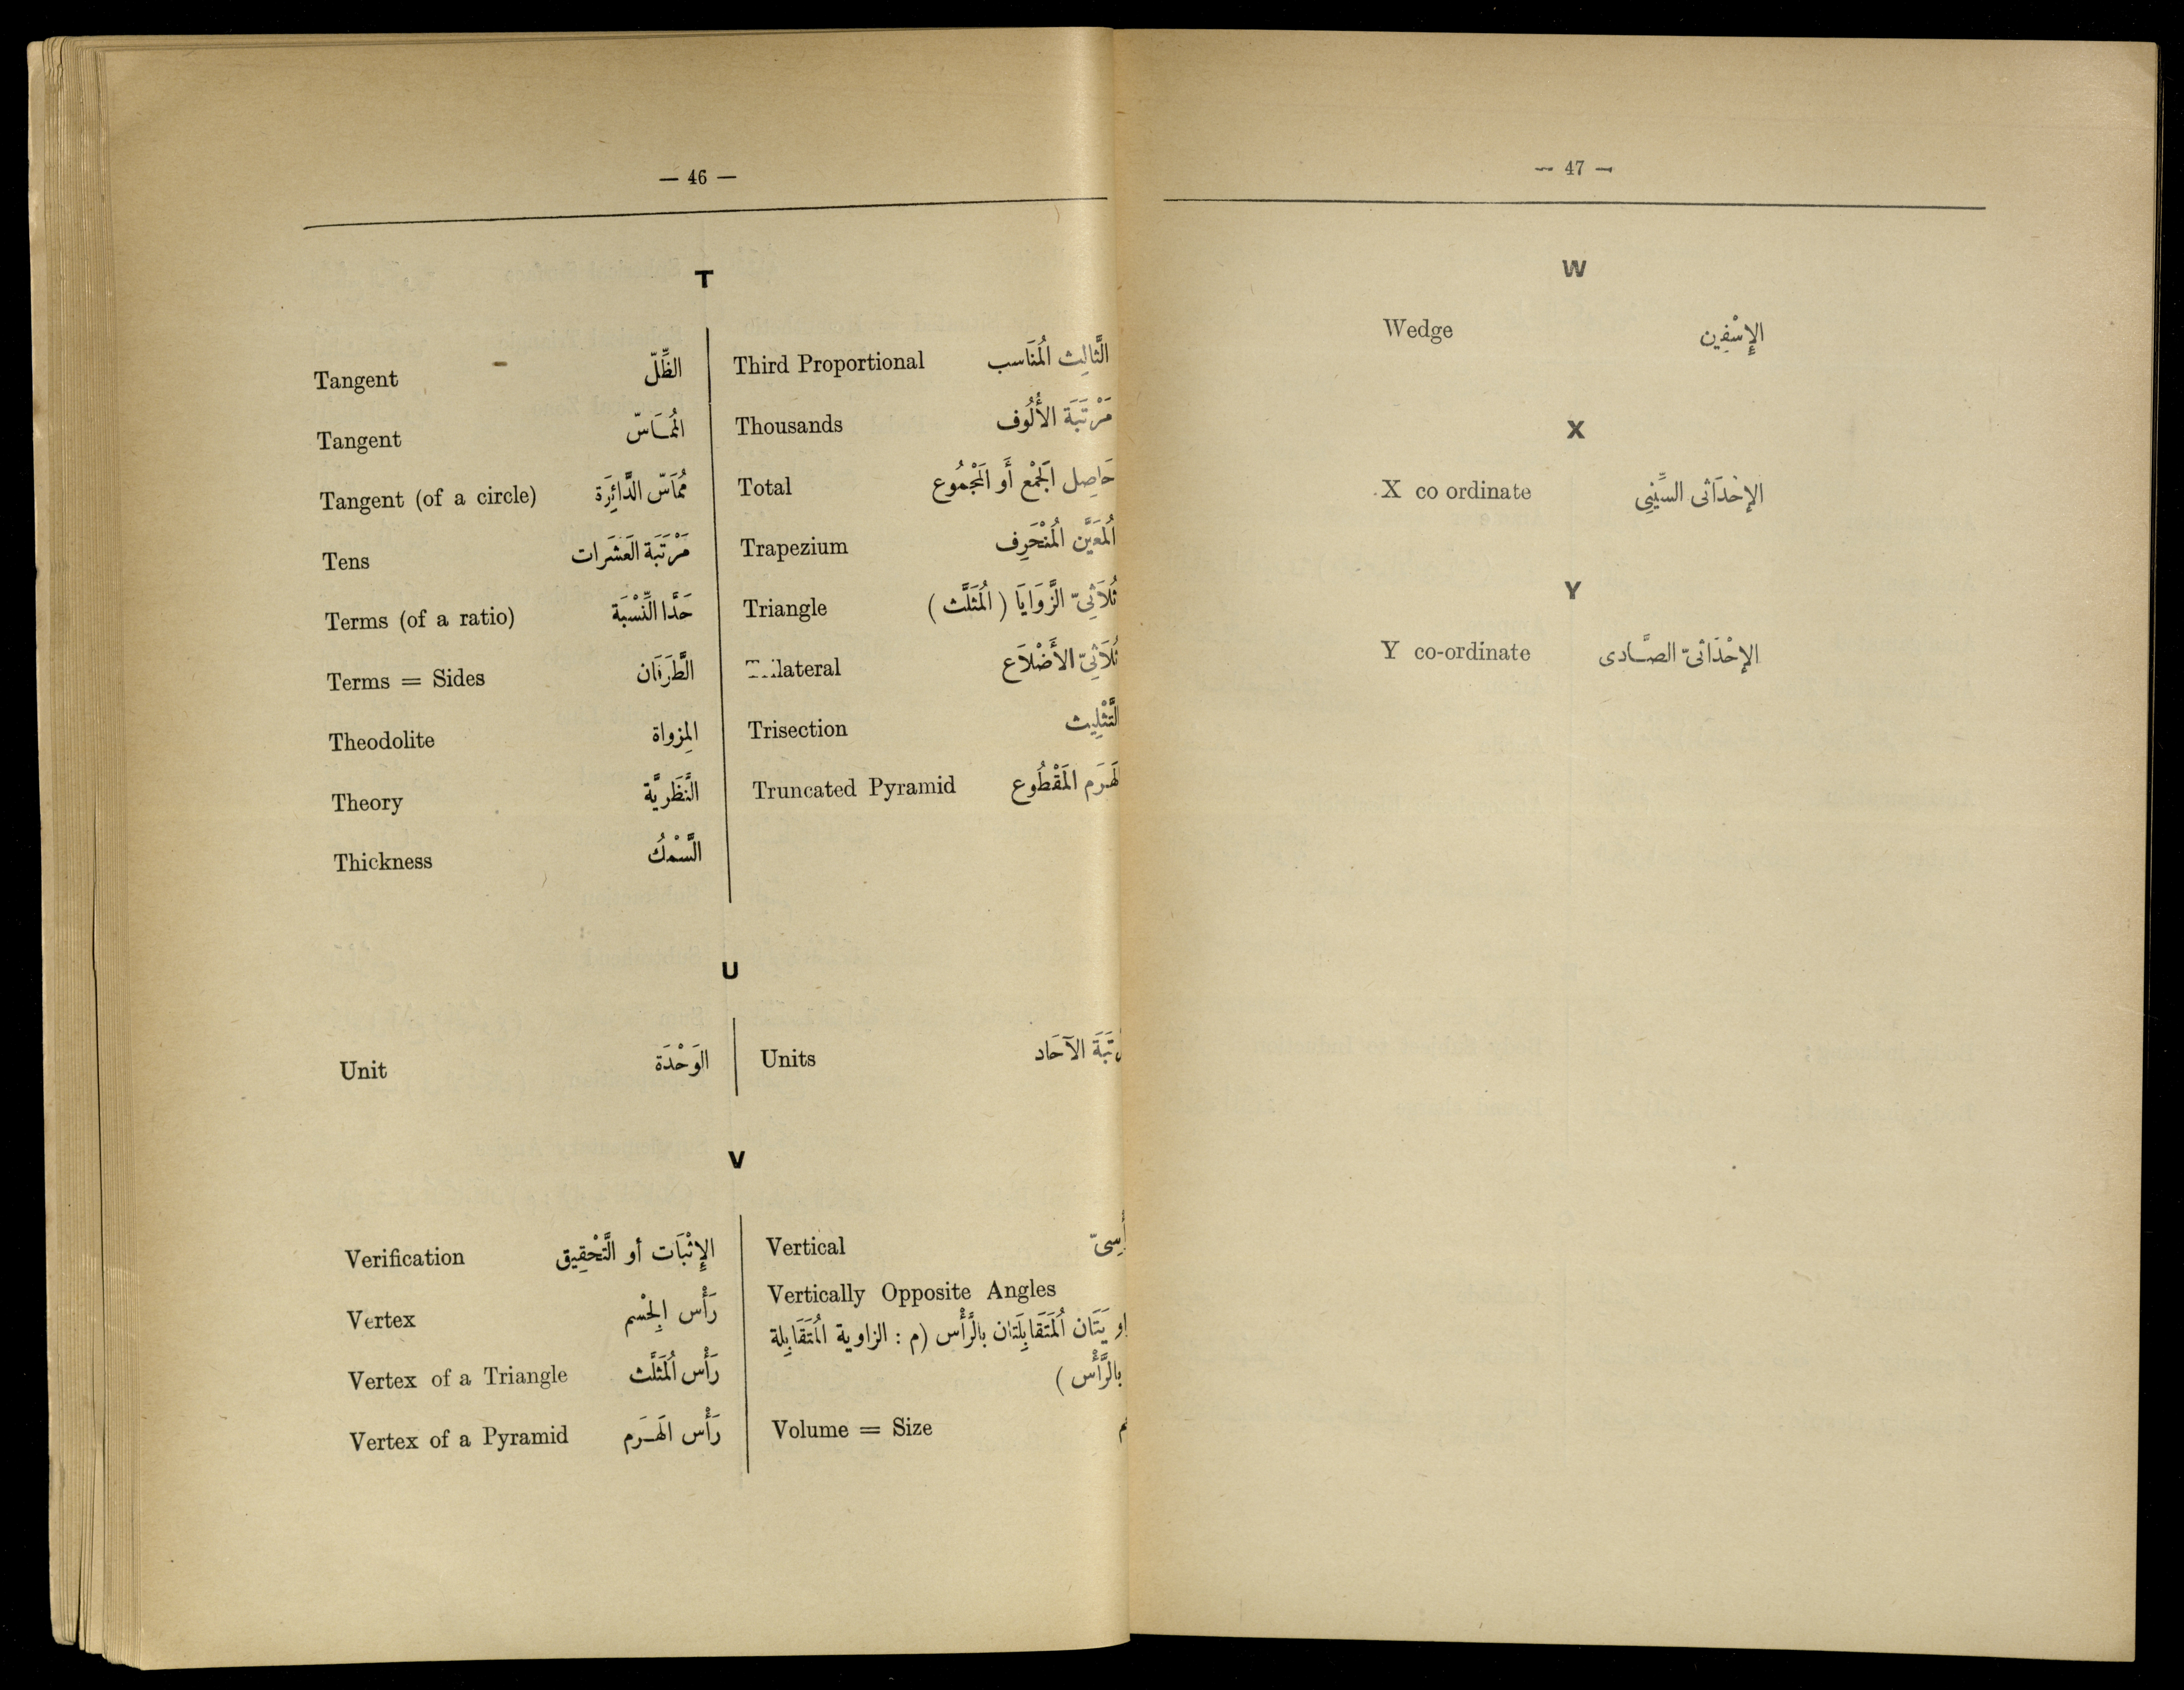 — 46 —
T
Tangent الظِّلّ
Tangent المُمَاسّ
Tangent (of a circle) مُمَاسّ الدَّائِرَة
Tens مَرْتَبَة العَشَرات
Terms (of a ratio) حَدَّا النِّسْبَة
Terms = Sides الطَّرَفَان
Theodolite المِزواة
Theory النَّظَرِيَّة
Thickness السَّمْكُ
Third Proportional الثَّالِث المُنَاسب
Thousands مَرْتَبَة الأُلُوف
Total حَاصِل الجَمْع أَو المَجْمُوع
Trapezium المُعَيَّن المُنْحَرِف
Triangle ثُلَاثِىّ الزَّوَايَا ( المُثَلَّث )
ثُلَاثِىّ الأَضْلَاع
Trisection التَّثْلِيث
Truncated Pyramid المَقْطُوع
U
Unit الوَحْدَة
Units الآحَاد
V
Verification الإِثْبَات أو التَّحْقِيق
Vertex رَأْس الجِسْم
Vertex of a Triangle رَأْس المُثَلَّث
Vertex of a Pyramid رَأْس الهَرَم
Vertical
Vertically Opposite Angles
المُتَقَابِلَتان بالرَّأْس (م : الزاوية المُتَقَابِلة
بالرَّأْس )
Volume = Size
— 47 —
W
Wedge الإِسْفِين
X
X co ordinate الإحْدَاثى السِّينِى
Y
Y co-ordinate الإحْدَاثىّ الصَّادى